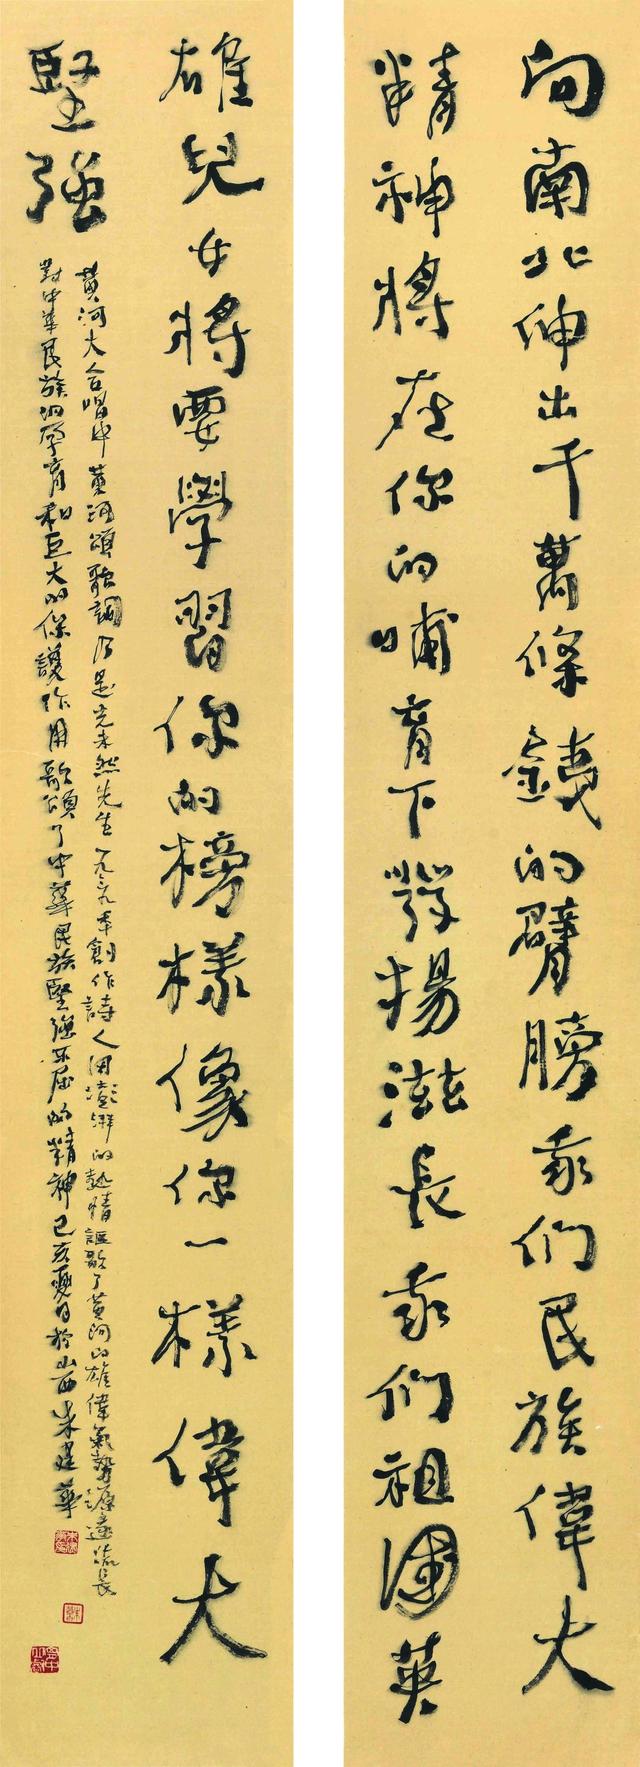 向南北伸出千萬條鐵的臂膀我們民族偉大
精神將在你的哺育下發揚滋長我們祖國英
雄兒女將要學習你的榜樣像你一樣偉大
堅強
黃河大合唱中黃河頌歌詞乃是光未然先生一九三九年創作詩人用澎湃的熱情謳歌了黃河的雄偉氣勢源遠流長
對中華民族的孕育和巨大的保護作用歌頌了中華民族堅強不屈的精神己亥夏日於山西朱建華